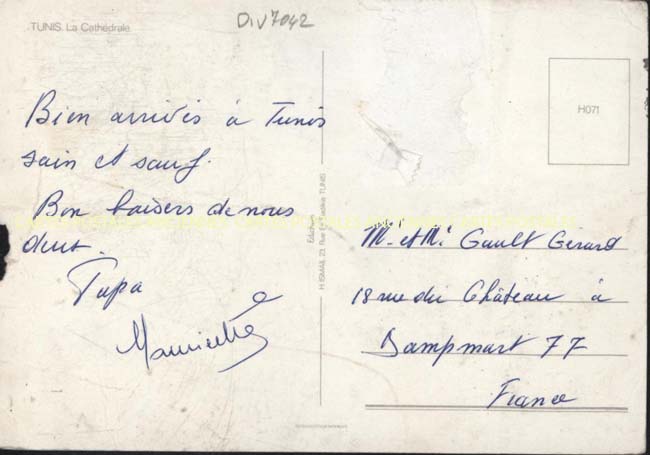 TUNIS. La Cathédrale
DIV7042
H071
Bien arrivés à Tunis
sain et sauf.
Bon baisers de nous
deux.
Papa
H ISMAIL 23, Rue TUNIS
Mr et Me Gault Gérard
18 rue du Château à
Dampmart 77
France